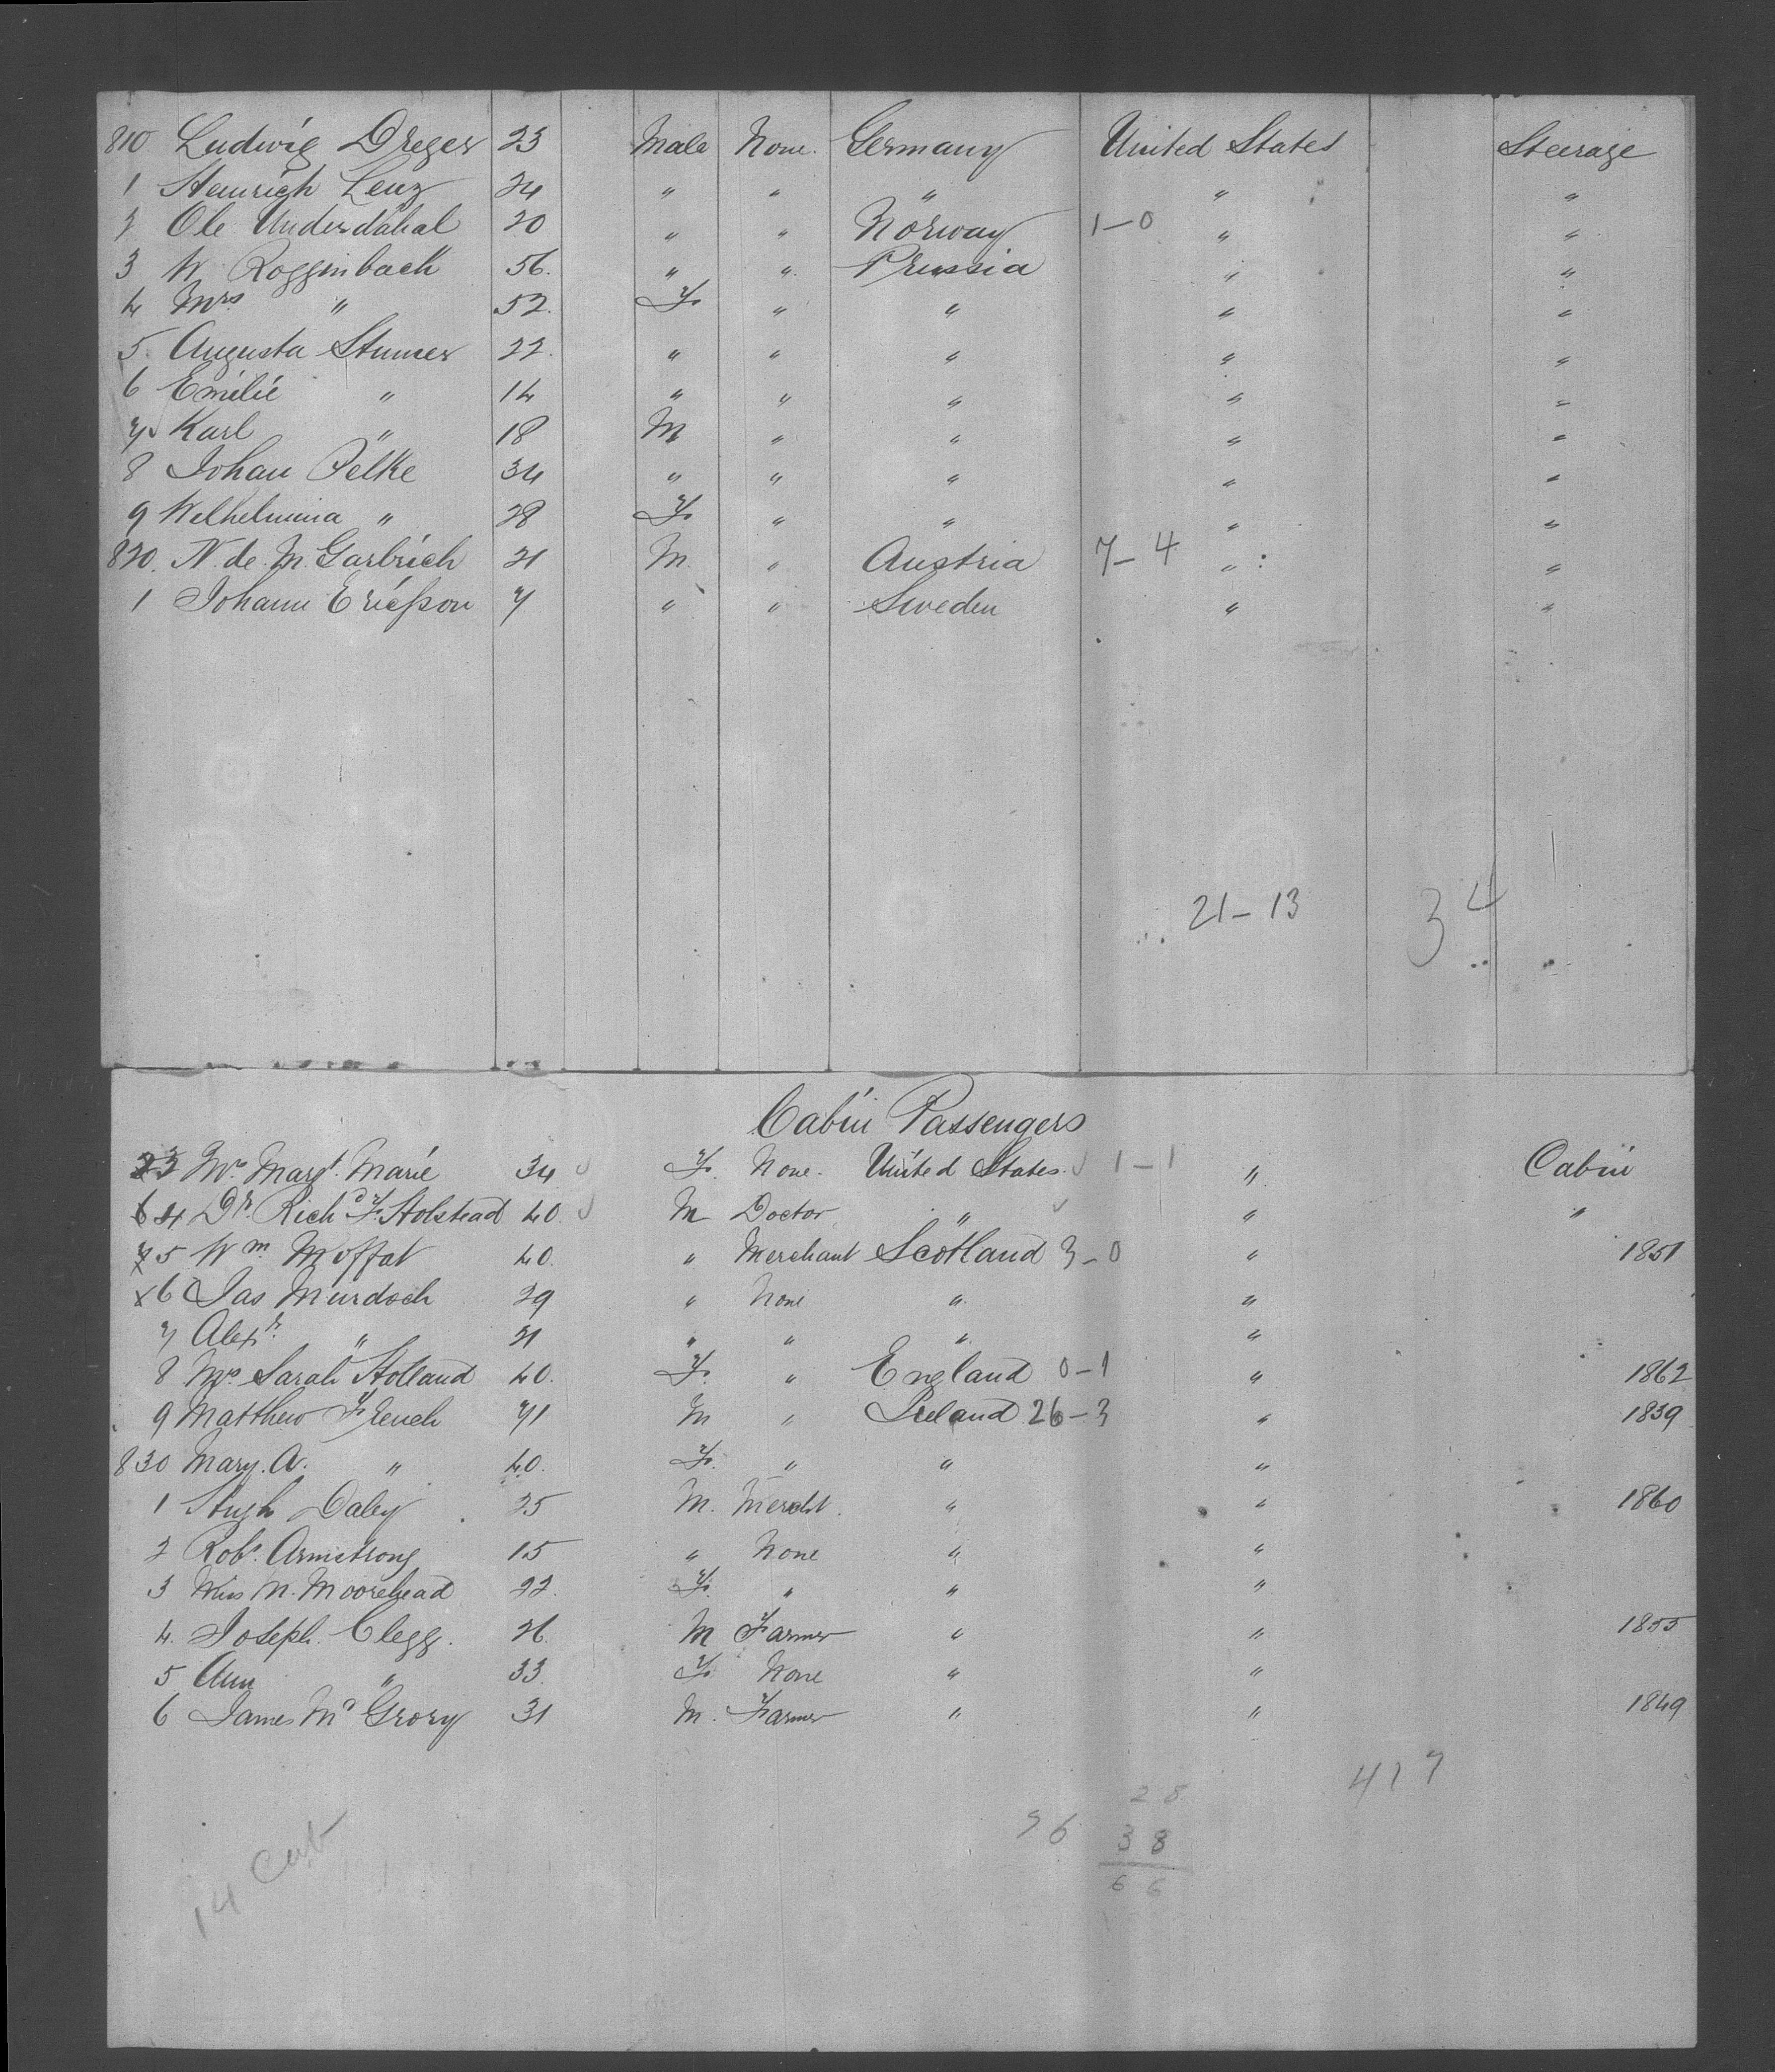 810 Ludwig Dreger 23 Male None. Germany United States Steerage
1 Heinrich Lenz 24 " " " " "
2 Ole Underdahal 20 " " Norway 1-0 " "
3 W Rogginbach 56. " " Prussia " "
4 Mrs " 52. F. " " " "
5. Augusta Stumer 22. " " " " "
6 Emilie " 14 " " " " "
7 Karl " 18 M " " " "
8 Johan Pelke 34 " " " " "
9 Welhelmina " 28 F. " " " "
820. N. de. M. Garbrich 21 M. " Austria 7-4 " "
1 Johann Ericsson 7 " " Sweden " "
21-13 34
Cabin Passengers
23 Mrs Margt. Marie 34 F. None. United States. 1-1 " Cabin
4 Dr. Richd F. Holstead 40. M Doctor " " "
5 Wm Moffat 40. " Merchant Scotland 3-0 " 1851
6 Jas Murdoch 29 " None " "
7 Alexr. " 21 " " " "
8 Mrs. Sarah Holland 40. F. " England 0-1 " 1862
9 Matthew French 71 M " Ireland 26-3 " 1839
830 Mary. A. " 40. F. " " "
1 Hugh Daley 25 M. Mercht. " " 1860
2 Robt. Armstrong 15 " None " "
3 Miss M. Moorehead 22. F. " " "
4. Joseph. Clegg. 26. M Farmer " " 1855
5 Ann " 33. F. None " "
6 James McGrory 31 M. Farmer " " 1849
417
28
96 38
66
14 Cab